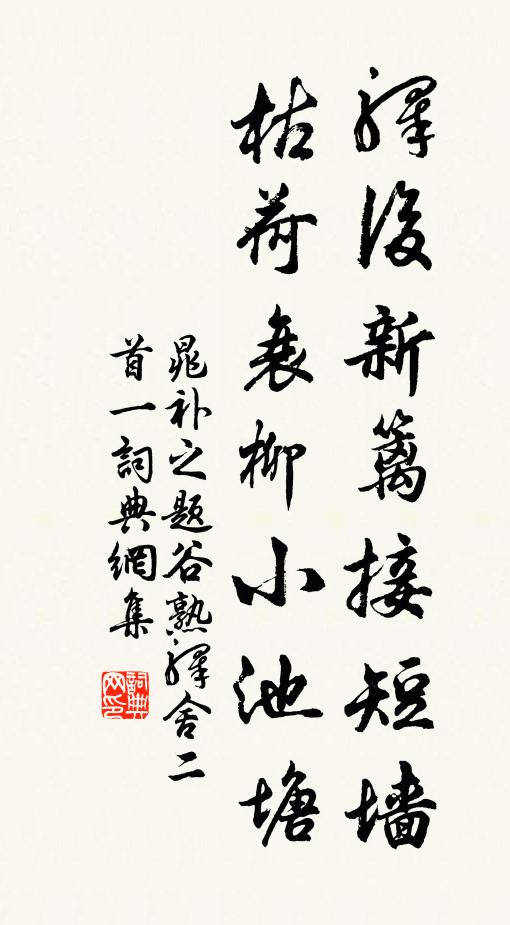 驛後新籬接短墻
枯荷衰柳小池塘
晁补之题谷熟驛舍二
首一詞典網集
詞典网印